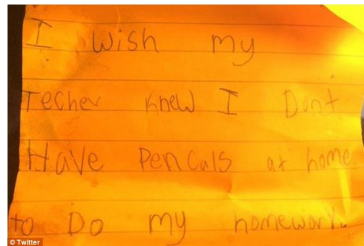 I wish my
Techer knew I Dont
Have Pencals at home
to Do my homework.
© Twitter